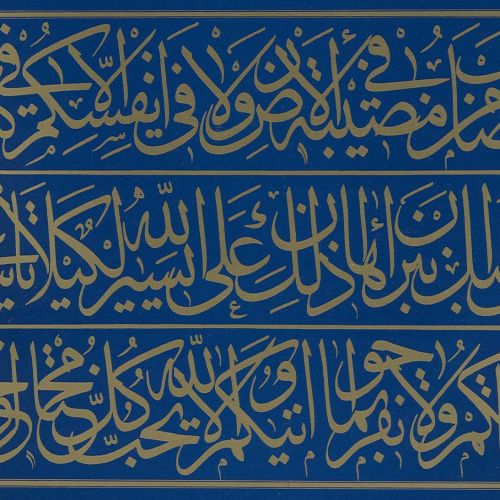 من مصيبة في الأرض ولا في أنفسكم إلا في
أن نبرأها إن ذلك على الله يسير لكيلا
ولا تفرحوا بما اتيكم والله لا يحب كل مختال